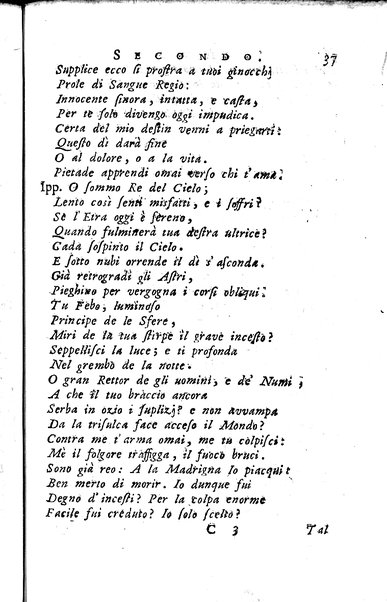 SECONDO. 37
Supplice ecco ſi proſtra a tuoi ginocchj
Prole di Sangue Regio:
Innocente ſinora, intatta, e caſta,
Per te ſolo divengo oggi impudica.
Certa del mio deſtin venni a priegarti:
Queſto dì darà fine
O al dolore, o a la vita.
Pietade apprendi omai verſo chi t'ama.
Ipp. O ſommo Re del Cielo;
Lento così ſenti misfatti, e i ſoffri?
Se l'Etra oggi è ſereno,
Quando fulminerà tua deſtra ultrice?
Cada ſoſpinto il Cielo.
E ſotto nubi orrende il dì s'aſconda.
Già retrogradi gli Aſtri,
Pieghino per vergogna i corſi obliqui.
Tu Febo, luminoſo
Principe de le Sfere,
Miri de la tua ſtirpe il grave inceſto?
Seppelliſci la luce; e ti profonda
Nel grembo de la notte.
O gran Rettor de gli uomini, e de' Numi;
A che il tuo braccio ancora
Serba in ozio i ſuplizj? e non avvampa
Da la triſulca face acceſo il Mondo?
Contra me t'arma omai, me tu colpiſci:
Mè il folgore traffigga, il fuoco bruci.
Sono già reo: A la Madrigna Io piacqui:
Ben merto di morir. Io dunque fui
Degno d'inceſti? Per la colpa enorme
Facile fui creduto? Io ſolo ſcelto?
C 3 Tal